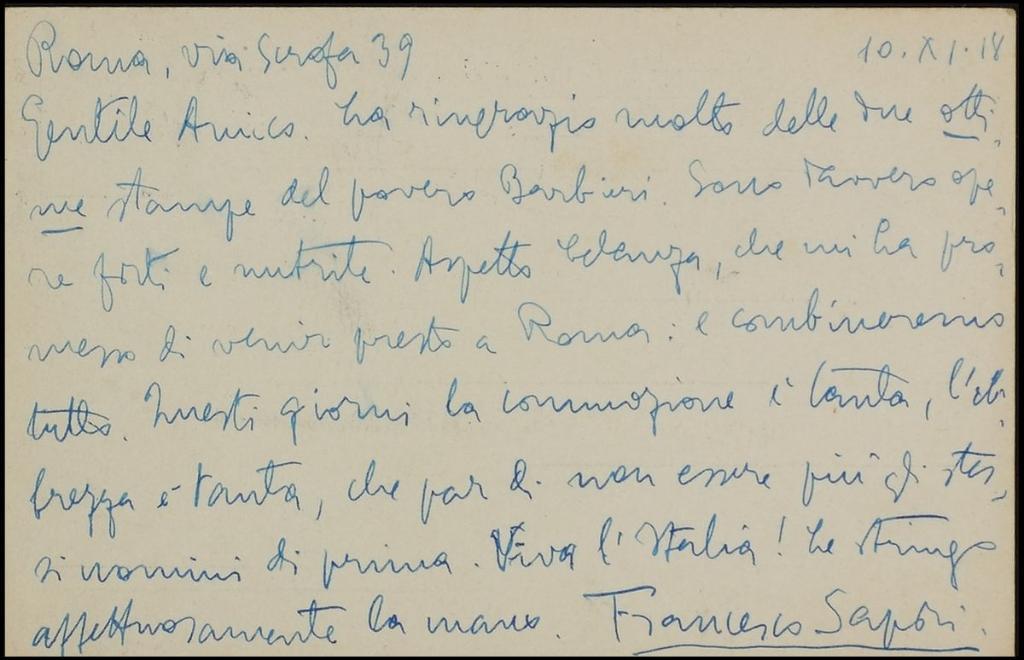 Roma, via Scrofa 39 10.XI.18
Gentile Amico. La ringrazio molto delle due otti,
me stampe del povero Barbieri. Sono davvero ope,
re forti e nutrite. Aspetto Cedanza, che mi ha pro,
messo di venir presto a Roma: e combineremo
tutto. Questi giorni la commozione è tanta, l'eb,
brezza è tanta, che par di non essere più gli stes,
si uomini di prima. Viva l'Italia! Le stringo
affettuosamente la mano. Francesco Sapori.